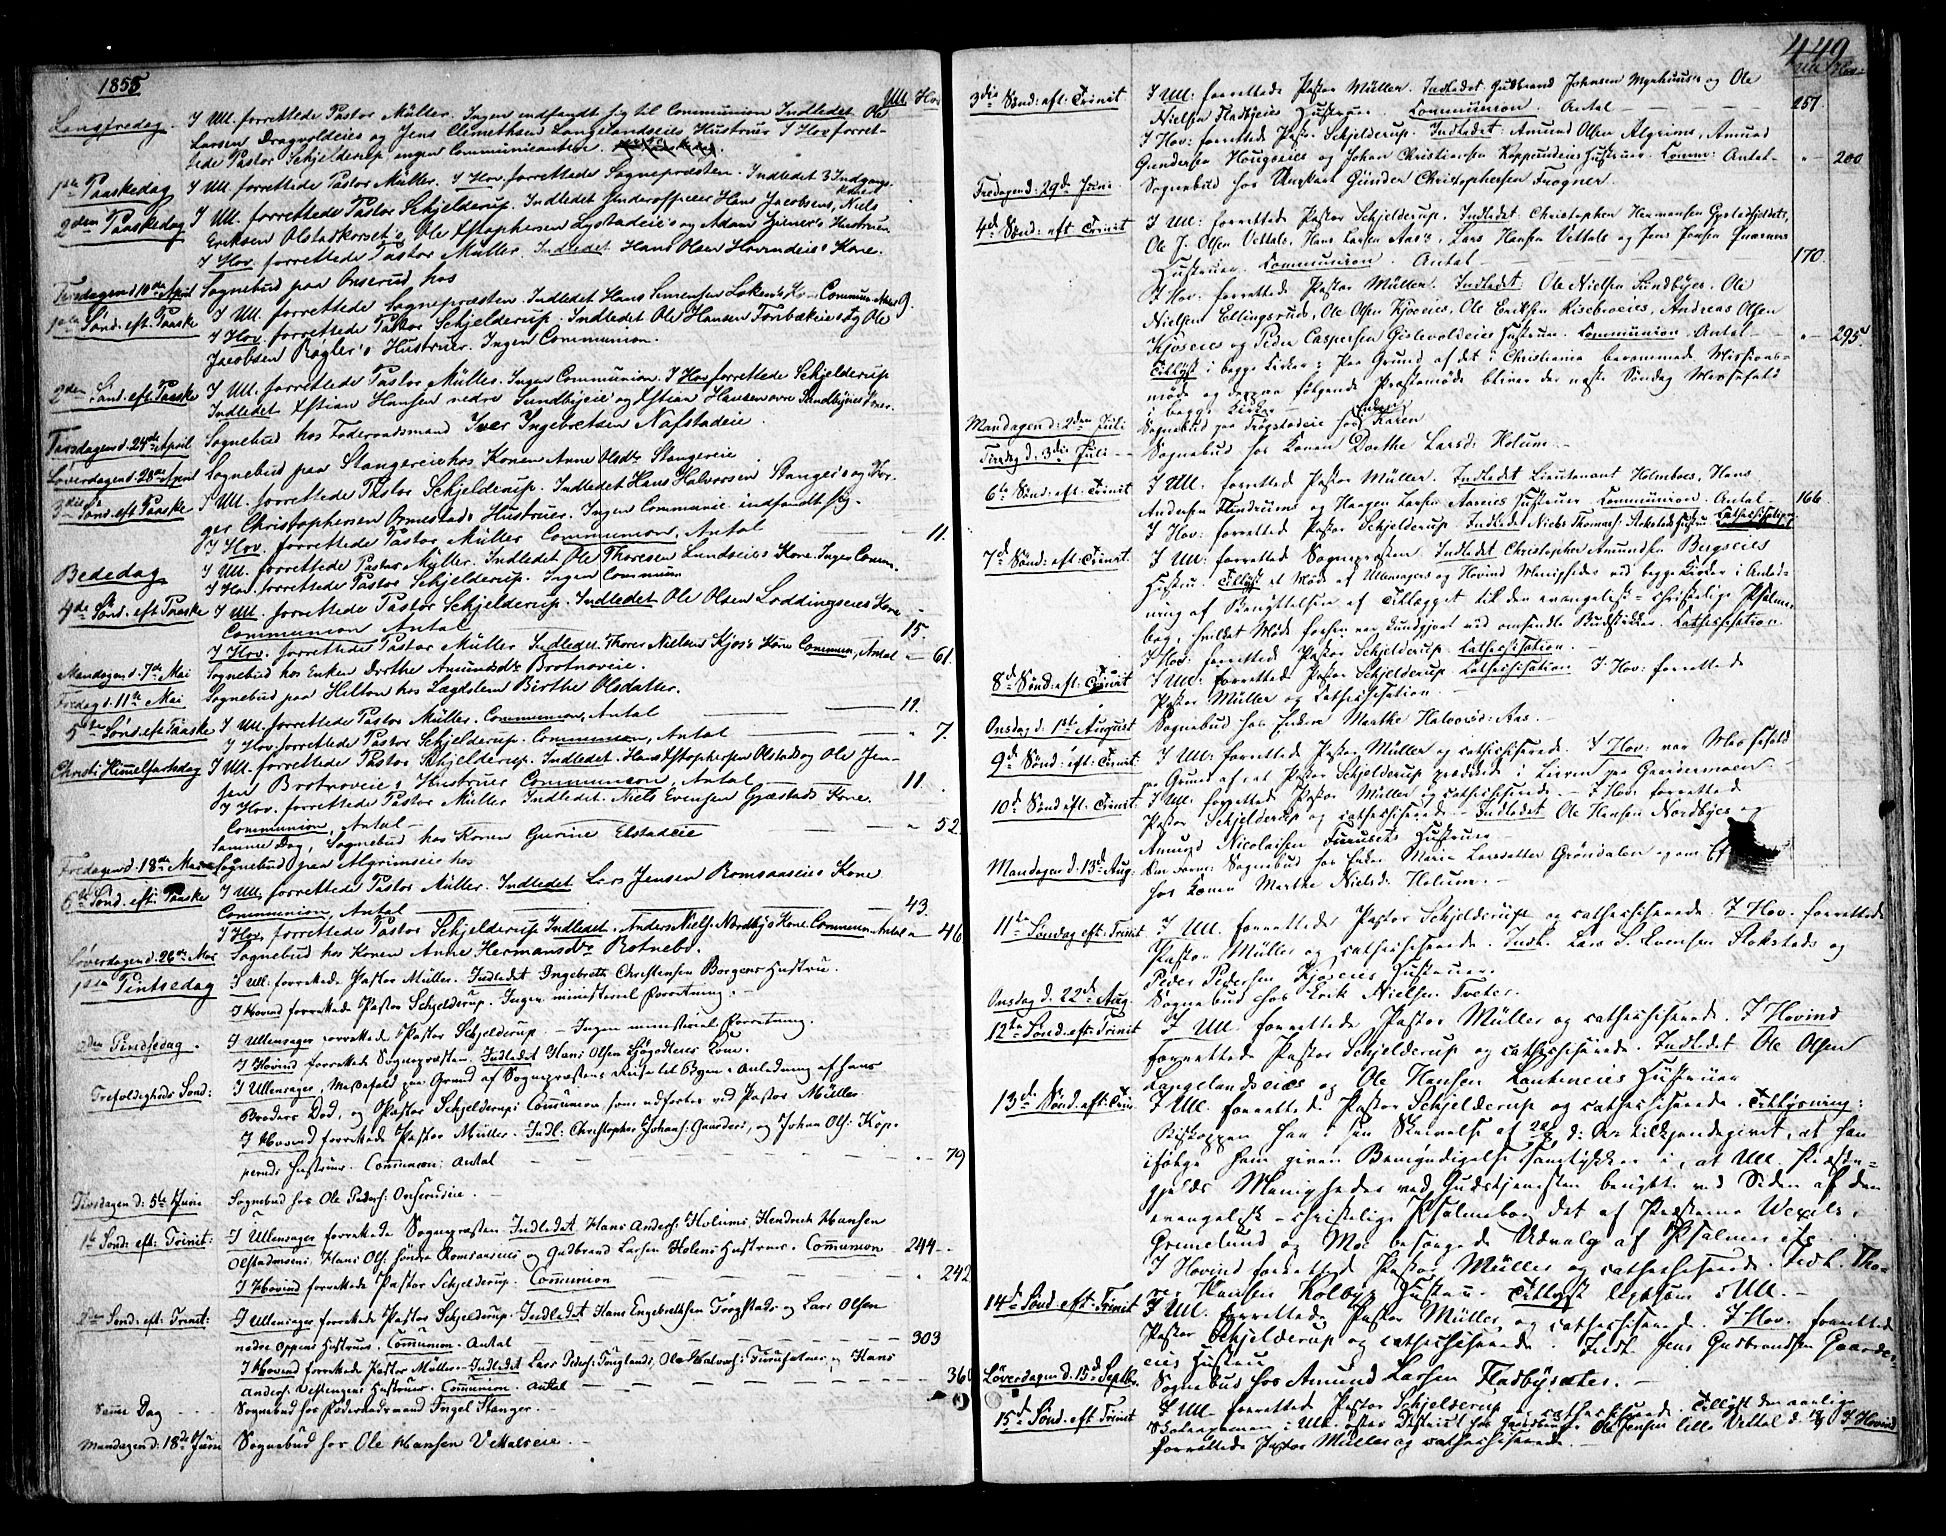 1855
Ull. Hov
Langfredag. I Ull. forrettede Pastor Müller. Ingen indfandt sig til Communion Indledet Ole
Larsen Dragvoldeies og Jens Clemethsen Langelandseies Hustruer I Hov. forret-
tede Pastor Schjelderup ingen Communicanter.
1ste Paaskedag I Ull. forrettede Pastor Müller. I Hov. forrettede Sognepræsten. Indledet 3 Indgangs-
koner
2den Paaskedag I Ull. forrettede Pastor Schjelderup. Indledet Underofficeer Hans Jacobsens, Niels
Eriksen Olstadkorset's, Ole Christophersen Lystadeie's og Adam Hustruer
I Hov. forrettede Pastor Müller. Indledet Hans Olsen Hovindeie's Kone.
Tirsdagen d. 10de April Sognebud paa Onserud hos
1ste Sønd. eft. Paaske I Ull. forrettede Sognepræsten. Indledet Hans Simensen Løken's Kone Commun. Antal 9.
I Hov. forrettede Pastor Schjelderup. Indledet Ole Hansen Fonbækeies og Ole
Jacobsen Røgler's Hustruer. Ingen Communion.
2den Sønd. eft. Paaske I Ull. forrettede Pastor Müller. Ingen Communion. I Hov. forrettede Schjelderup
Indledet Chstian Hansen nedre Sundbyeie og Chstian Hansen øvre Sundbyeies Koner.
Tirsdagen d. 24de April Sognebud hos Føderaadsmand Iver Ingebretsen Nafstadeie.
Løverdagen d. 28de April Sognebud paa Stangereie hos Konen Anne Olsdr. Stangereie
3die Sønd. eft. Paaske I Ull. forrettede Pastor Schjelderup. Indledet Hans Halvorsen Stanger's og Tor-
ger Christophersen Ormestads Hustruer. Ingen Communic. indfandt sig.
I Hov. forrettede Pastor Müller Communion, Antal — 11.
Bededag I Ull. forrettede Pastor Müller. Indledet Ole Thoresen Lundseie's Kone. Ingen Commun.
I Hov. forrettede Pastor Schjelderup. Ingen Commun.
4de Sønd. eft. Paaske I Ull. forrettede Pastor Schjelderup. Indledet Ole Olsen Loddingseies Kone
Communion Antal — 15.
I Hov. forrettede Pastor Müller Indledet Thorer Nielsen Kjos's Kone Commun, Antal " 61.
Mandagen d. 7de Mai Sognebud hos Enken Dorthe Amundsdr. Brotnoveie.
Fredag d. 11te Mai Sognebud paa Hilton hos Lægdslem Birthe Olsdatter.
5te Sønd. eft. Paaske I Ull. forrettede Pastor Müller. Communion, Antal — 11.
I Hov. forrettede Pastor Schjelderup. Communion, Antal — " 7.
Christi Himmelfartsdag I Ull. forrettede Pastor Schjelderup. Indledet. Hans Chstophersen Olstads og Ole Jen-
sen Brotnoveie's Hustruer Communion, Antal — 11.
I Hov. forrettede Pastor Müller Indledet. Niels Evensen Gjæstads Kone.
Communion, Antal — " 52
samme Dag, Sognebud hos Konen Gurine Elstadeie
Fredagen d. 18de Mai Sognebud paa Algrimseie hos
6te Sønd. eft. Paaske I Ull. forrettede Pastor Müller. Indledet Lars Jensen Romsaaseies Kone
Communion, Antal — 43.
I Hov. forrettede Pastor Schjelderup Indledet. Anders Niels. Nordby's Kone. Commun. Antal " 46
Løverdagen d. 26de Mai Sognebud hos Konen Anne Hermansdr. Botnebø.
1ste Pintsedag I Ull. forrettede Pastor Müller. Indledet Ingebreth Christensen Borgens Hustru.
I Hovind forrettede Pastor Schjelderup. Ingen ministeriel Forretning.
2den Pindsedag. I Ullensager forrettede Pastor Schjelderup. — Ingen ministerial Forretning.
I Hovind forrettede Sognepræsten. Indledet Hans Olsen Kone.
Trefoldigheds Sønd: I Ullensager Messefald paa Grund af Sognepræstens Reise til Byen i Anledning af hans
Broders Død, og Pastor Schjelderups Communion som udførtes ved Pastor Müller
I Hovind forrettede Pastor Müller. Indl: Christopher Johans: Gaarders, og Johan Ols: Kop-
peruds Hustruer. Communion: Antal — " 79
Tirsdagen d. 5te Juni Sognebud hos Ole Peders: Onserudeie.
1te Sønd: eft: Trinit: I Ullensager forrettede Sognepræsten. Indledet Hans Anders: Holums, Hendrich Hansen
Olstadmoens, Hans Ols: søndre Romsaaseies og Gudbrand Larsen Holens Hustruer. Communion 244 —
I Hovind forrettede Pastor Schjelderup. Communion — " 242
2den Sønd: eft: Trinit: I Ullensager forrettede Pastor Schjelderup. Indledet Hans Engebrethsen Frøgstads og Lars Olsen
nedre Oppens Hustruer. Communion. Antal — 303
I Hovind forrettede Pastor Müller. Indledet Lars Peders: Fuglends, Ole Halvors: Furusetseies, og Hans
Anders: Vestengens Hustruer. Communion. Antal — 36
Samme Dag Sognebud hos Føderaadsmand Ingel Stanger.
Mandagen d: 18de Juni Sognebud hos Ole Hansen Vettaleie.
449
Ull. Hov.
3die Sønd: eft: Trinit: I Ull: forrettede Pastor Müller. Indledet Gudbrand Johansen Myrhuus's og Ole
Nielsen Fladbyeies Hustruer. Communion. Antal — 257.
I Hov: forrettede Pastor Schjelderup. Indledet: Amund Olsen Algrims, Amund
Gundersen Hougseies og Johan Christiansen Kopperudeies Hustruer. Comm: Antal — " 200
Fredagen d: 29de Juni. Sognebud hos Ungkarl Gunder Christophersen Frogner.
4de Sønd: eft. Trinit I Ull: forrettede Pastor Schjelderup. Indledet: Christopher Hermansen Gystadfeldets,
Ole J. Olsen Vettals, Hans Larsen Aas's, Lars Hansen Vettals og Jens Jensen
Hustruer. Communion. Antal — 170
I Hov: forrettede Pastor Müller. Indledet: Ole Nielsen Sundbyes, Ole
Nielsen Ellingsruds, Ole Olsen Kjoseies, Ole Eriksen Risebroeies, Andreas Olsen
Kjoseies og Peder Caspersen Gislevoldeies Hustruer. Communion. Antal — " 295.
Tillyst i begge Kirker: Paa Grund af det i Christiania berammede Missions-
møde og derpaa følgende Præstemøde bliver der næste Søndag Messefald
i begge Kirker
Mandagen d: 2den Juli Sognebud paa Frøgstadeie hos Enken Karen
Tirsdag d: 3die Juli — Sognebud hos Konen Dorthe Larsd: Holum. —
6te Sønd: eft: Trinit I Ull: forrettede Pastor Müller. Indledet Lieutenant Holmboes, Hans
Andersen Flindrums og Haagen Larsen Aaseies Hustruer Communion. Antal — 166
I Hov: forrettede Pastor Schjelderup. Indledet Niels Thomas: Slokstads Hustru. Cathechisation
7de Sønd: eft: Trinit. I Ull: forrettede Sognepræsten Indledet Christopher Amundsen Bergseies
Hustru. Tillyst et Møde af Ullensagers og Hovind Menigheder ved begge Kirker i Anled-
ning af Benyttelsen af Tillægget til den evangelisk-christelige Psalme-
bog, hvilket Møde forhen var kundgjort ved omsendte Budstikker. Cathechisation
I Hov: forrettede Pastor Schjelderup. Cathechisation. —
8de Sønd: eft: Trinit I Ull: forrettede Pastor Schjelderup Cathechisation I Hov: forrettede
Pastor Müller og Cathechisation. —
Onsdag d. 1ste August Sognebud hos Enken Marthe Halvorsd: Aas. —
9de Sønd: eft: Trinit: I Ull: forrettede Pastor Müller og cathechiserede. I Hov: var Messefald
paa Grund af, at Pastor Schjelderup prædikede i Leiren paa Gaardermoen. —
10de Sønd. eft. Trinit: I Ull: forrettede Pastor Müller og cathechiserede. — I Hov: forrettede
Pastor Schjelderup og cathechiserede. — Indledet Ole Hansen Nordbyes og
Amund Nicolaisen Furusets Hustruer. —
Mandagen d. 13de Aug. Om Form: Sognebud hos Enken Maria Larsdatter Grøndalen og om
hos Konen Marthe Nielsd: Holum. —
11te Søndag eft. Trinit I Ull. forrettede Pastor Schjelderup og cathechiserede. I Hov. forrettede
Pastor Müller og cathechiserede. Indl. Lars S. Evensen Slokstads og
Peder Pedersen Kjoseies Hustruer.
Onsdag d. 22de Aug. Sognebud hos Erik Nielsen Tveter.
12te Sønd. eft. Trinit I Ull. forrettede Pastor Müller og cathechiserede. I Hovind
forrettede Pastor Schjelderup og cathechiserede. Indledet Ole Olsen
Langelandseies og Ole Hansen Lauteneies Hustruer
13de Sønd. eft. Trin. I Ull. forrettede Pastor Schjelderup og cathechiserede. Tillysning:
Biskoppen har i sin Skrivelse af d: A: tilkjendegivet, at han
ifølge ham given Bemyndigelse samtykker i, at Ull. Præste-
gjelds Menigheder ved Gudstjenesten benytte ved Siden af den
evangelisk-christelige Psalmebog det af Præsterne Wexels,
Grimelund og Moe besørgede Udvalg af Psalmer etc.
I Hovind forrettede Pastor Müller og cathechiserede. Indl. Tho-
Hansen Kolbyes Hustru. Tillyst ligesom i Ull. —
14de Sønd. eft. Trinit I Ull. forrettede Pastor Müller og cathechiserede. I Hov. forrettede
Pastor Schjelderup og cathechiserede. Indl. Jens Gudbrandsen Gaarder-
eies Hustru
Løverdagen d. 15de Septbr. Sognebud hos Amund Larsen Fladbysæter. —
15de Sønd. eft. Trinit I Ull. forrettede Pastor Schjelderup og cathechiserede. Tillyst den aarlige
i Ull. østre District hos Ole Jensen lille Vettal d. I Hovind
forrettede Pastor Müller og cathechiserede. —